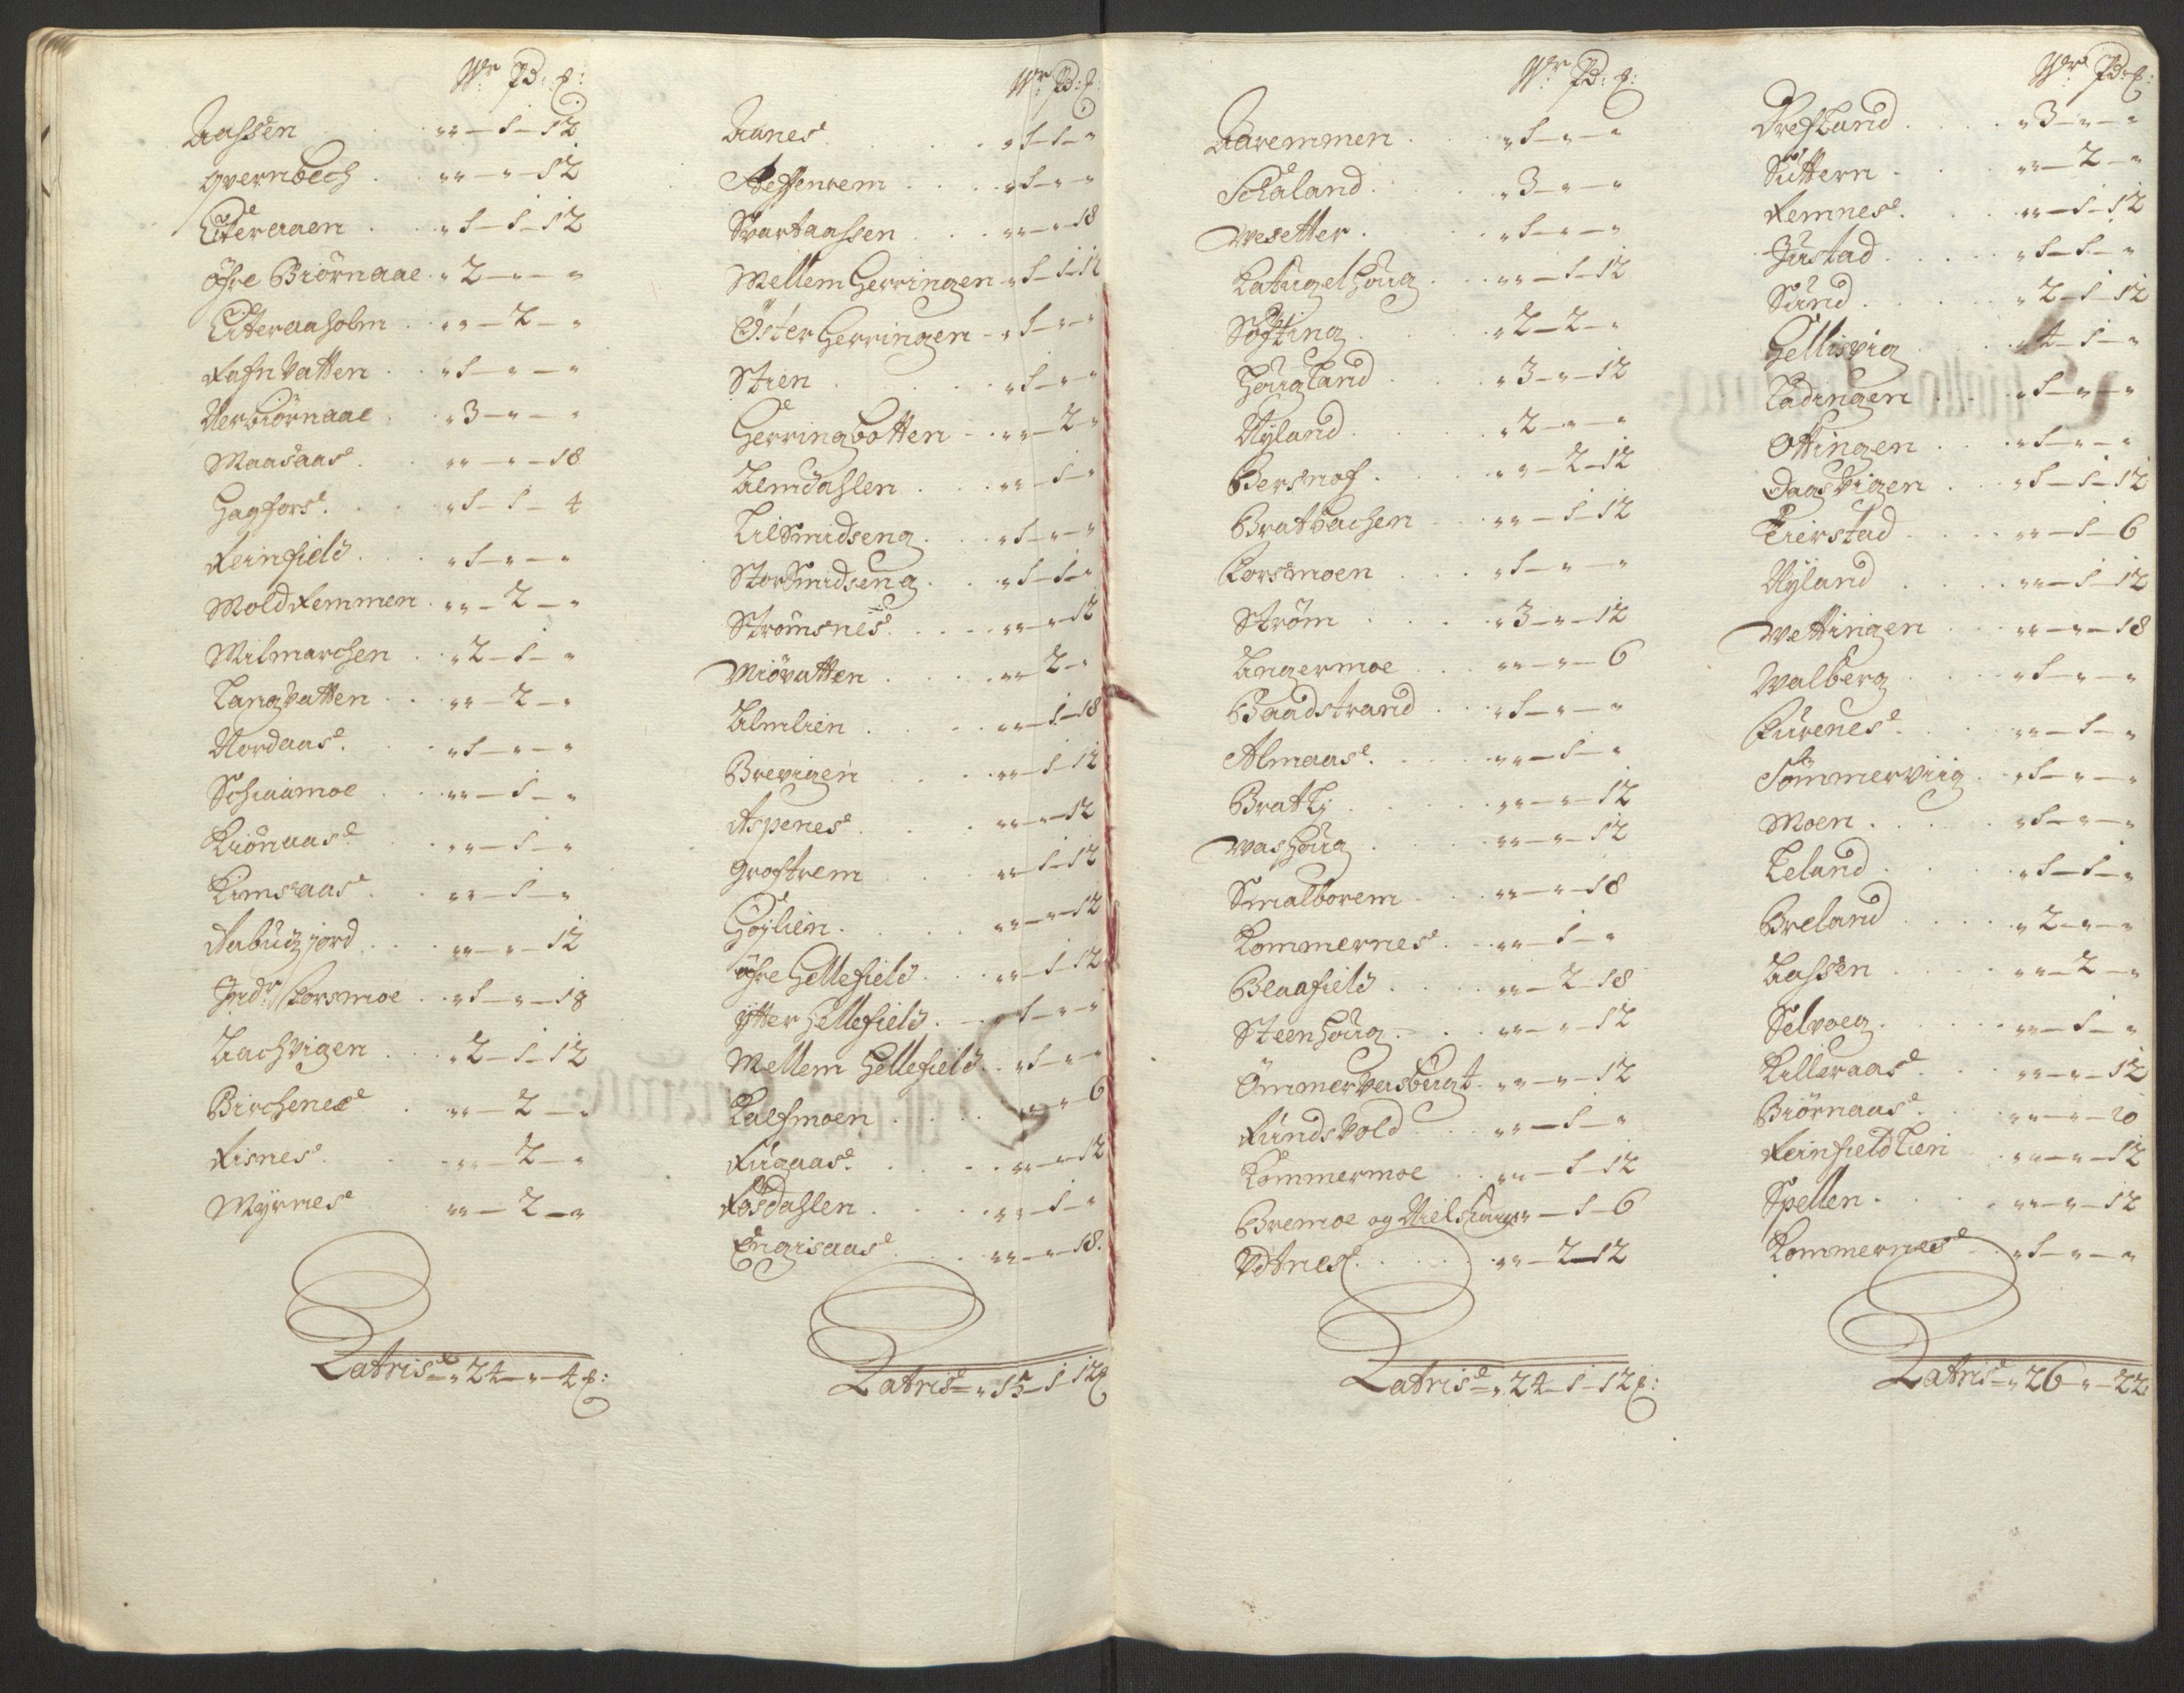 Wr Pd: £:
Aassen . . „„—1—12
Qvernbech . „„—„—12
Eiteraaen . . „1—1—12
öfre Biörnaae . „2—„—„
Eiteraaholm . „„—2—„
Rafnvatten . . „1—„—„
Nerbiörnaae . „3—„—„
Maasaas . . „„—„—18
Hagfors . . „1—1—4
Reinfield . . „1—„—„
Moldremmen . „„—2—„
Milmarchen . „2—1—„
Langvatten . . „„—2—„
Nordaas . . „1—„—„
Schiaamoe . „„—1—„
Kiönaas . „„—1—„
Kimsaas . „„—1—„
Jndr Korsmoe . „1—„—18
Aachvigen . „2—1—12
Birchenes . „„—2—„
Risnes . . „„—2—„
Myrnes . „„—2—„
Latris = „24—„—4 £:
Wr Pd: £:
Aanes . . . „1—1—„
Steffenrem . . . „1—„—„
Svartaassen . . . „„—„—18
Mellem Herringen . „1—1—12
Öster Herringen . „1—„—„
Stien . . . „1—„—„
Herringbotten . . „„—2—„
Almdahlen . . „„—1—„
Lilsmidseng . . „1—„—„
Storsmidseng . . „1—1—„
Strömsnes . . . „„—„—12
Miövatten . . . „„—2—„
Almlien . . . „„—1—18
Brevigen . . „„—1—12
Aspenes . . . „„—„—12
Groftrem . . „„—1—12
Höylien . . . „„—„—12
öfre Hellefield . . „„—1—12
ytter Hellefield . . „1—„—„
Mellem Hellefield . „1—„—„
Kalfmoen . . . „„—„—6
Rugaas . . . „„—„—12
Rösdahlen . . . „„—1—„
Engisaas . . . „„—„—18.
Latris = „15—1—12 £
Wr Pd: £:
Aaremmen . . „1—„—„
Schaland . . „3—„—„
Wesetter . . „1—„—„
Katugelhoug . . „„—1—12
Söfting . . „2—2—„
Hougland . . „3—„—12
Nyland . . „2—„—„
Bersnof . . „„—2—12
Bratbachen . . „„—1—12
Korsmoen . . „1—„—„
Ström . . „3—„—12
Angermoe . . „„—„—6
Baadstrand . . „1—„—„
Almaas . . „„—1—„
Bratli . . „„—„—12
Washoug . . „„—„—12
Smalborem . . „„—„—18
Kommernes . . „„—1—„
Blaafield . . „„—2—18
Steenhoug . . „„—„—12
Ömmervasbugt . „„—„—12
Rundsvold . . „„—1—„
Kommermoe . . „„—1—12
Bremoe og Nielshaug „„—1—6
Udtnes . . „„—2—12
Latris = „24—1—12 £:
Wr Pd: £:
Drefland . . . „3—„—„
Suttern . . . „„—2—„
Remnes . . . „„—1—12
Justad . . . „1—1—„
Sund . . . „2—1—12
Hellisvig . . . „4—1—„
Ladingen . . . „1—„—„
Ottingen . . . „1—„—„
Daasvigen . . . „1—1—12
Leierstad . . . „„—1—6
Nyland . . . „„—1—12
Wettingen . . „„—„—18
Walberg . . . „1—„—„
Kurenes . . . „„—1—„
Sömmerviig . . „1—„—„
Moen . . . „1—„—„
Leland . . . „1—1—„
Breland . . . „2—„—„
Aassen . . . „„—2—„
Selvoeg . . . „„—1—„
Killeraas . . „„—„—12
Biörnaas . . „„—„—20
Reinfieldlien . „„—„—12
Spellen . . . „„—„—12
Kommernes . . „1—„—„
Latris = „26—„—22